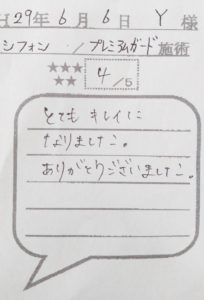 H29年6月6日 Y 様
シフォン / プレミアムガード施術
★★★★★ 4/5
とても キレイに
なりました。
ありがとうございました。